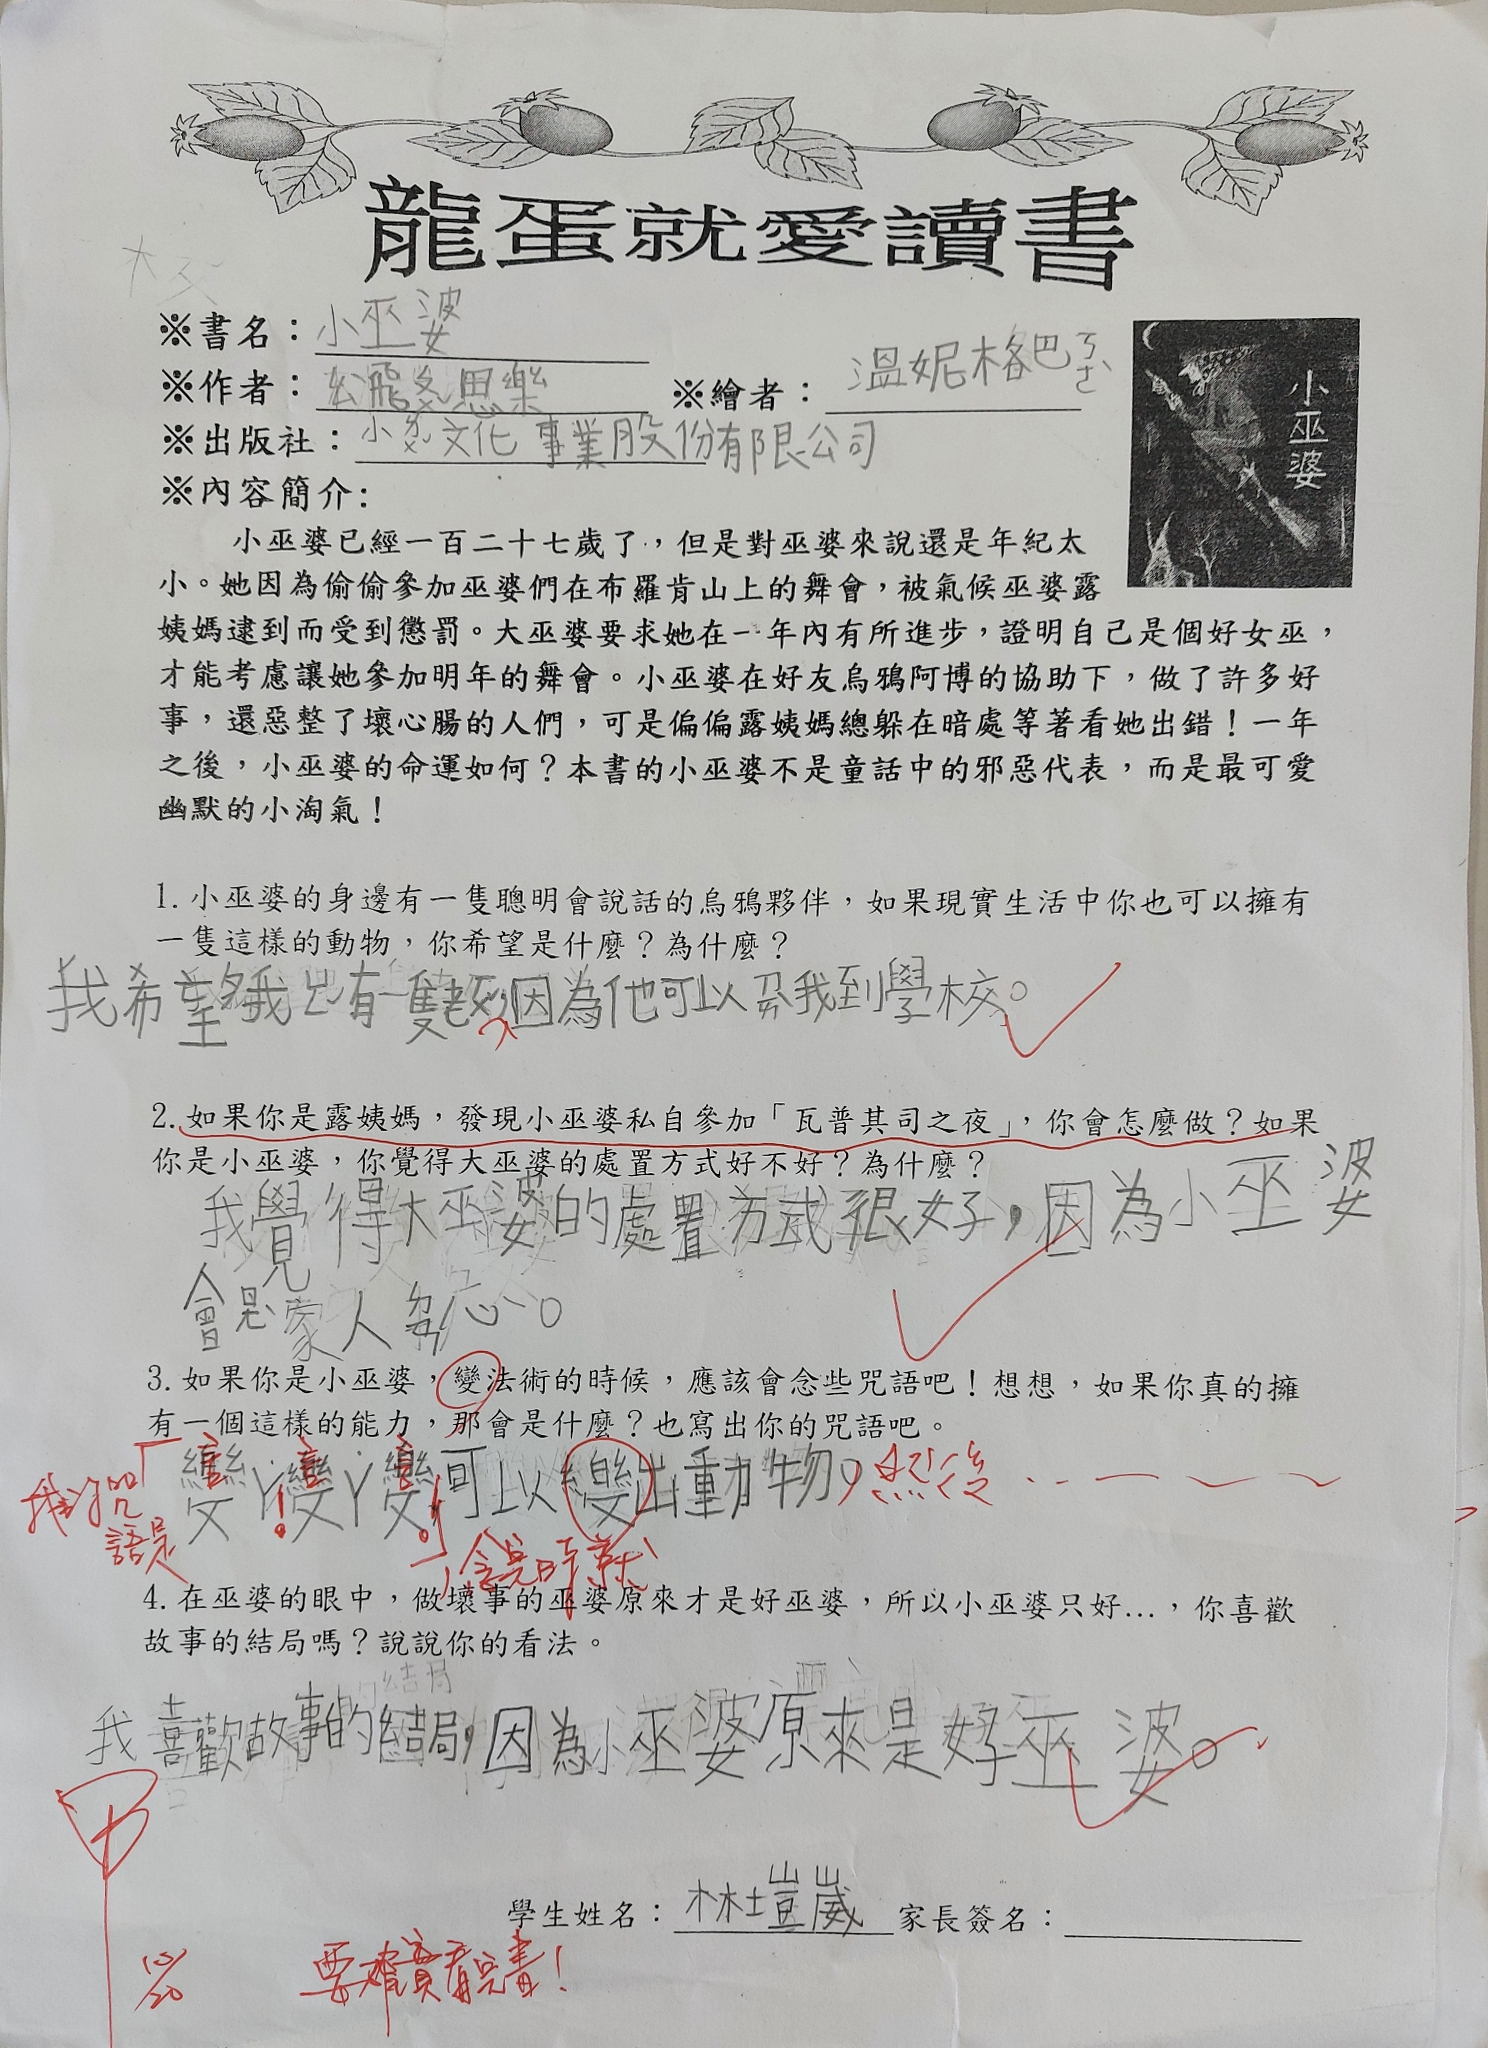 龍蛋就愛讀書
※書名：小巫婆
※作者：
※繪者：溫妮格巴ㄎㄜˋ
※出版社：小 文化事業股份有限公司
※內容簡介：
小巫婆
小巫婆已經一百二十七歲了，但是對巫婆來說還是年紀太
小。她因為偷偷參加巫婆們在布羅肯山上的舞會，被氣候巫婆露
姨媽逮到而受到懲罰。大巫婆要求她在一年內有所進步，證明自己是個好女巫，
才能考慮讓她參加明年的舞會。小巫婆在好友烏鴉阿博的協助下，做了許多好
事，還惡整了壞心腸的人們，可是偏偏露姨媽總躲在暗處等著看她出錯！一年
之後，小巫婆的命運如何？本書的小巫婆不是童話中的邪惡代表，而是最可愛
幽默的小淘氣！
1. 小巫婆的身邊有一隻聰明會說話的烏鴉夥伴，如果現實生活中你也可以擁有
一隻這樣的動物，你希望是什麼？為什麼？
我希望我也有一隻，因為他可以我到學校。
2. 如果你是露姨媽，發現小巫婆私自參加「瓦普其司之夜」，你會怎麼做？如果
你是小巫婆，你覺得大巫婆的處置方式好不好？為什麼？
我覺得大巫婆的處置方式很好，因為小巫婆
會 家人 心。
3. 如果你是小巫婆，變法術的時候，應該會念些咒語吧！想想，如果你真的擁
有一個這樣的能力，那會是什麼？也寫出你的咒語吧。
我的咒語是「變ㄚ！變ㄚ變！」可以變出動物，然後
4. 在巫婆的眼中，做壞事的巫婆原來才是好巫婆，所以小巫婆只好…，你喜歡
故事的結局嗎？說說你的看法。
我喜歡故事的結局，因為小巫婆原來是好巫婆。
甲
學生姓名：林塏崴 家長簽名：
10/20
要確實看完書！